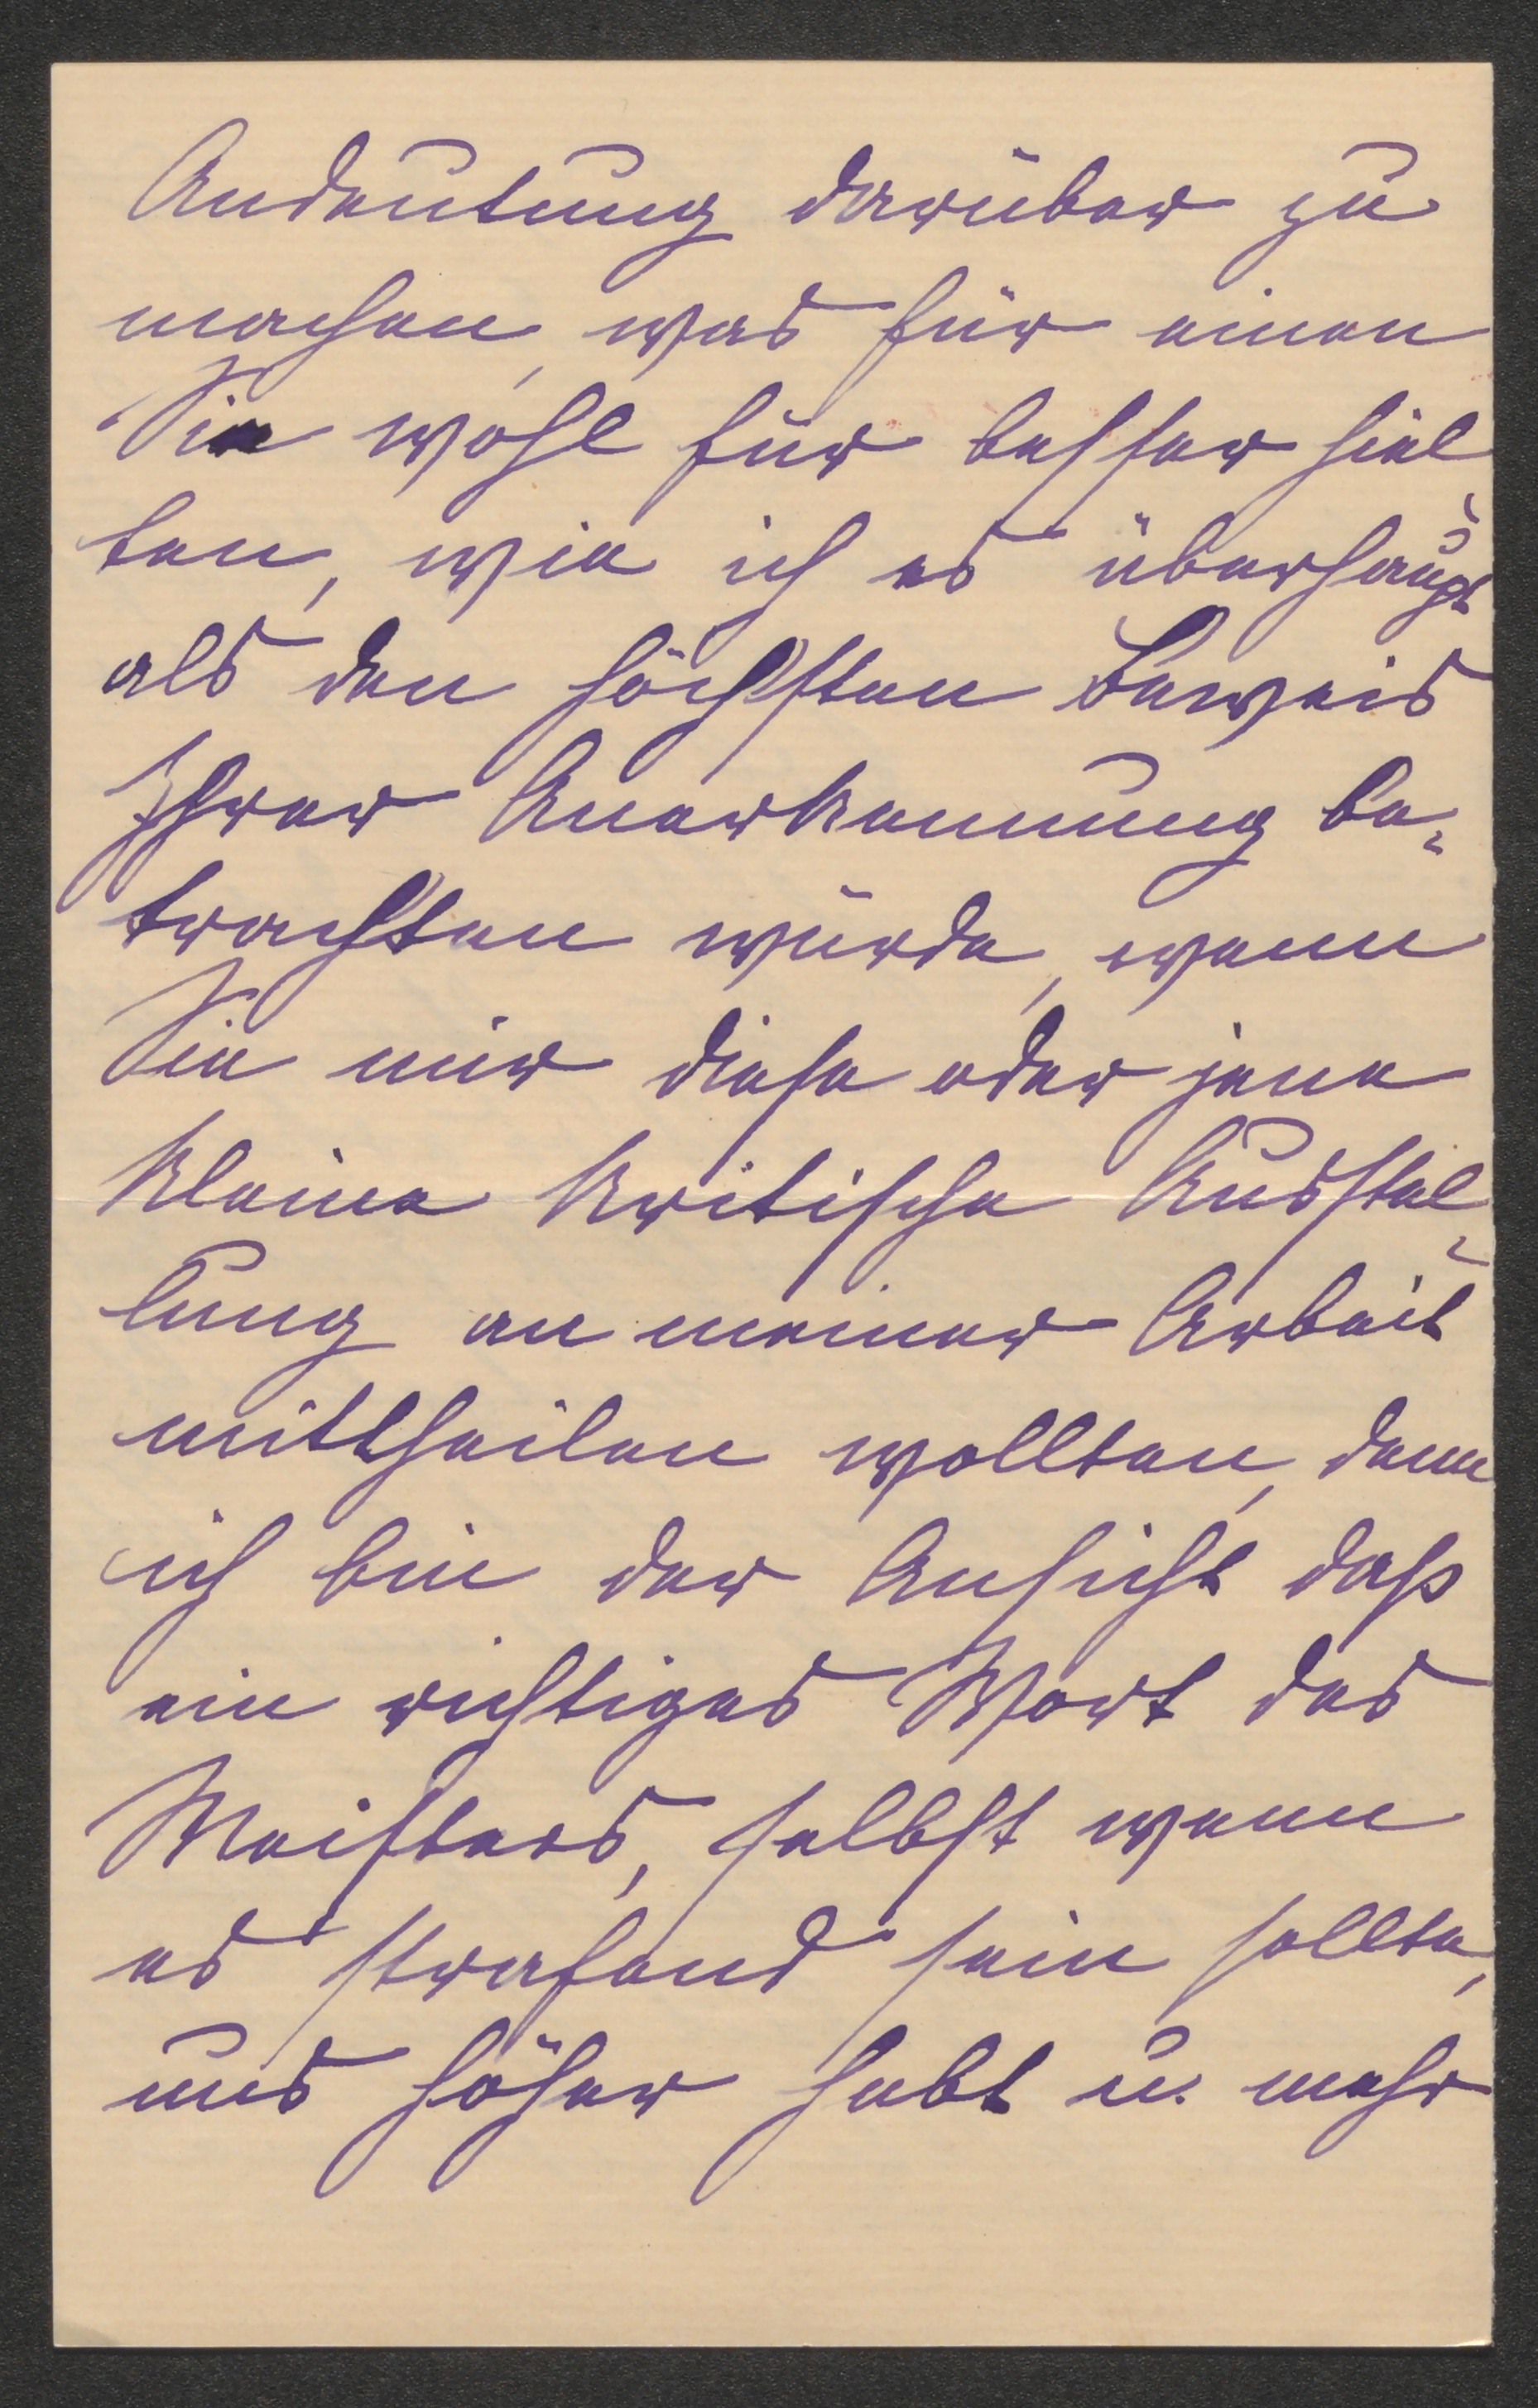 Andeutung darüber zu
machen, was für einen
Sie wohl für besser hiel
ten, wie ich es überhaupt
als den höchsten Beweis
Ihrer Anerkennung be-
trachten würde, wenn
Sie mir diese oder jene
kleine kritische Ausstel-
lung an meiner Arbeit
mittheilen wollten, denn
ich bin der Ansicht daß
ein richtiges Wort des
Meisters, selbst wenn
es strafend sein sollte,
uns höher hebt u. mehr